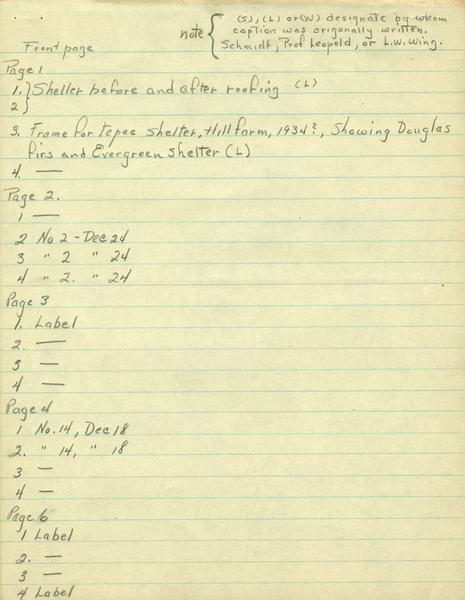 note { (S), (L) or (W) designate by whom
caption was origonally written.
Schmidt, Prof Leopold, or L.W. Wing.
Front page
Page 1
1.} Shelter before and after roofing (L)
2
3. Frame for Tepee shelter, Hill farm, 1934?, Showing Douglas
firs and Evergreen shelter (L)
4. —
Page 2.
1 —
2 No 2 - Dec 24
3 " 2 " 24
4 " 2. " 24
Page 3
1. Label
2. —
3 —
4 —
Page 4
1 No. 14, Dec 18
2. " 14, " 18
3 —
4 —
Page 6
1 Label
2. —
3 —
4 Label